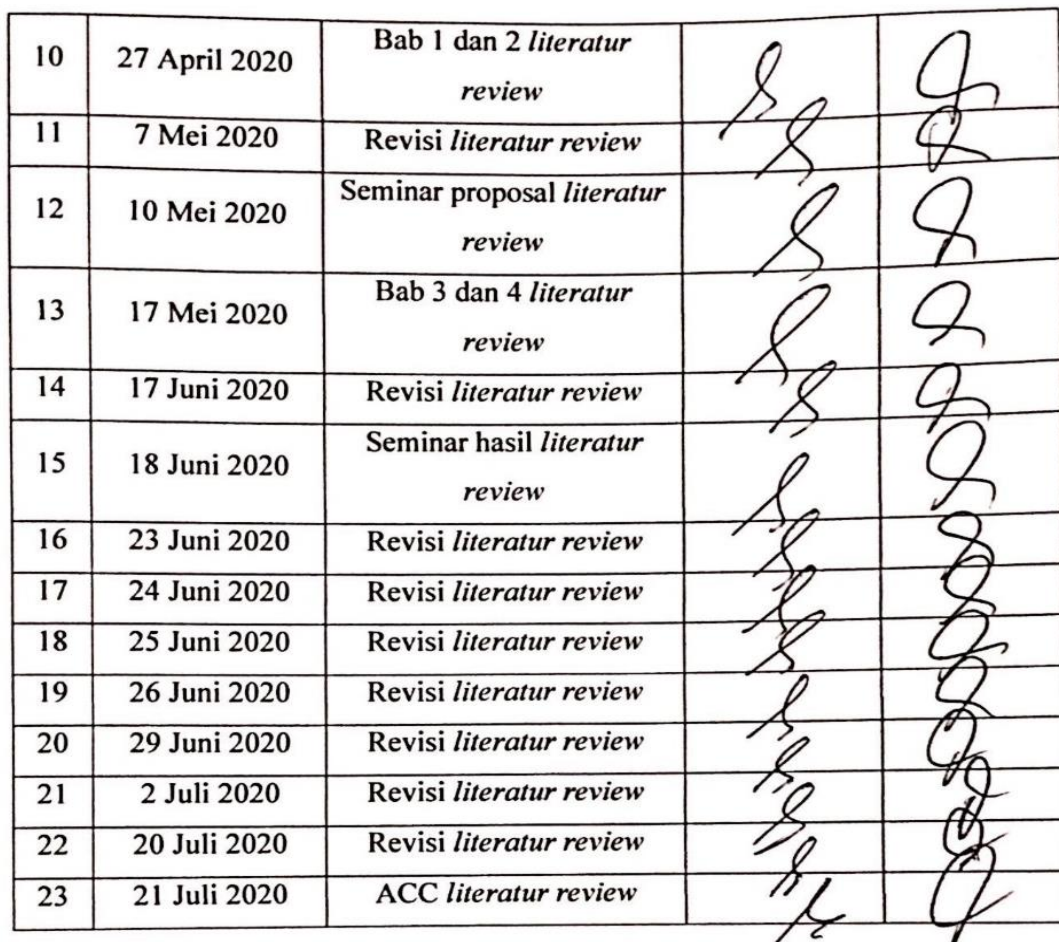 10 27 April 2020 Bab 1 dan 2 literatur
review
11 7 Mei 2020 Revisi literatur review
12 10 Mei 2020 Seminar proposal literatur
review
13 17 Mei 2020 Bab 3 dan 4 literatur
review
14 17 Juni 2020 Revisi literatur review
15 18 Juni 2020 Seminar hasil literatur
review
16 23 Juni 2020 Revisi literatur review
17 24 Juni 2020 Revisi literatur review
18 25 Juni 2020 Revisi literatur review
19 26 Juni 2020 Revisi literatur review
20 29 Juni 2020 Revisi literatur review
21 2 Juli 2020 Revisi literatur review
22 20 Juli 2020 Revisi literatur review
23 21 Juli 2020 ACC literatur review